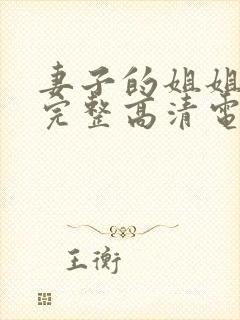 妻子的姐姐
完整高清電
王衡